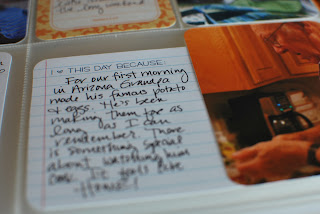 the long weekend
I ♥ THIS DAY BECAUSE:
For our first morning
in Arizona Grandpa
made his famous potato
& eggs. He's been
making them for as
long as I can
remember. There
is something special
about watching him
It feels like
Home!